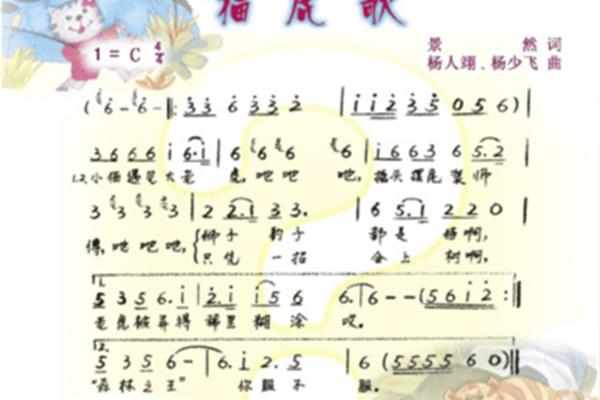 猫虎歌
1=C 4/4
景 然 词
杨人翊、杨少飞 曲
( 6 - 6 - ‖: 3 3 6 3 3 2 | i i 2 3 5 0 5 6 )
3 6 6 6 i 6·i | 6 6 6 6 | i 6 6 3 6 5·2
1.2.小猫遇见大老 虎,吔吔 吔,摇头摆尾装师
3 3 3 3 | 2 2·1 3 3. | 6 5·1 2 2 0
傅,吔吔吔, 狮子 豹子 都是 猫啊,
只凭 一招 会上 树啊,
1.
5 3 5 6·i | 2·i i 5 6 6·6 - - ( 5 6 i 2 :‖
老虎被弄得稀里糊涂 哎。
2.
5 3 5 6 - - 6·i 2·5 | 6 ( 5 5 5 5 6 0 )‖
“森林之王” 你服不 服。